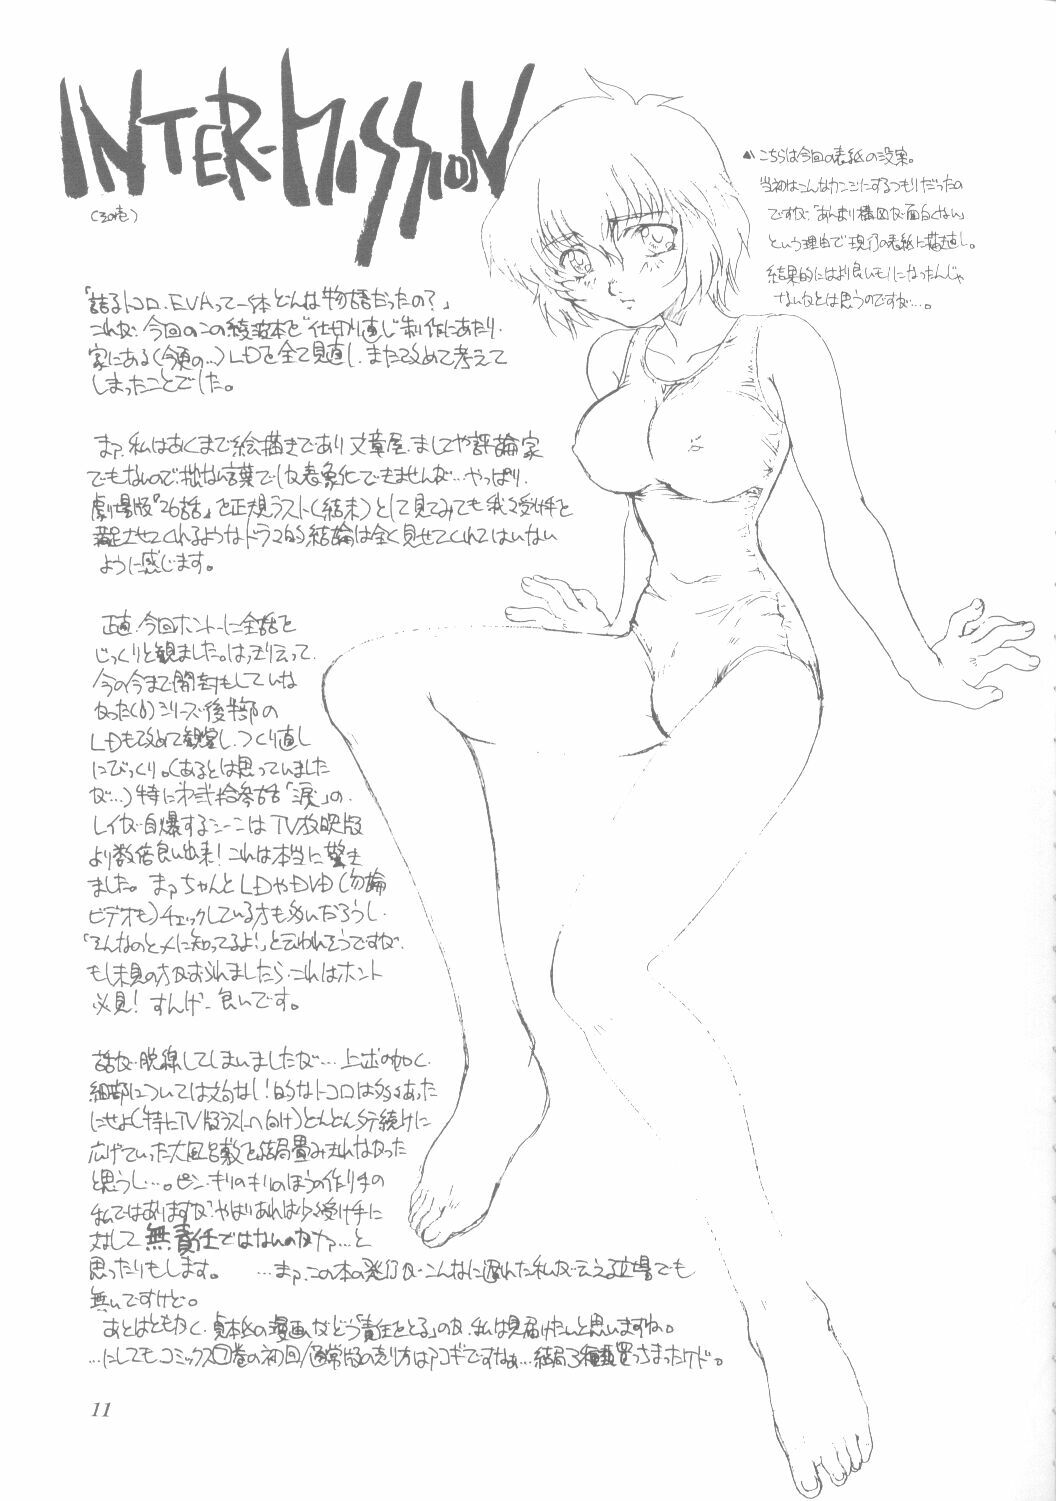 INTER-MISSION
(その壱)
▲こちらは今回の表紙の没案。
当初はこんなカンジにするつもりだったの
ですが、「あんまり構図が面白くない」
という理由で現行の表紙に描き直し。
結果的にはより良いモノになったんじゃ
ないかとは思うのですが…。
「詰るトコロ、EVAって一体どんな物語だったの?」
これが、今回のこの綾波本を“仕切り直し”制作にあたり、
家にある(今更の…)LDを全て見直し、また改めて考えて
しまったことでした。
まァ、私はあくまで絵描きであり文章屋、ましてや評論家
でもないので、拙ない言葉でしか表象化できませんが…やっぱり、
劇場版『26話』を正規ラスト(結末)として見てみても我々受け手を
満足させてくれるようなドラマ的結論は全く見せてくれてはいない
ように感じます。
正直、今回ホントーに全話を
じっくりと観ました。はっきり云って、
今の今まで開封もしていな
かった(汗)シリーズ後半部の
LDも改めて観賞し、つくり直し
にびっくり。(あるとは思っていました
が…)特に第弐拾参話「涙」の、
レイが自爆するシーンはTV放映版
より数倍良い出来!これは本当に驚き
ました。まァちゃんとLDやDVD(勿論
ビデオも)チェックしている方も多いだろうし、
「そんなのとっくに知ってるよ!」と云われそうですが、
もし未見の方がおられましたら、これはホント
必見!すんげー良いです。
話が脱線してしまいましたが…、上述の如く、
細部については文句なし!的なトコロは多々あった
にせよ(特にTV版ラストへ向け)どんどん
広げていった大風呂敷を結局畳みきれなかった
と思うし…。ピン・キリのキリのほうの作り手の
私ではありますが、やはりあれは少々受け手に
対して無責任ではないのかァ…と
思ったりもします。 …まァ、この本の発行がこんなに遅れた私が云える立場でも
無いですけど。
あとはともかく、貞本氏の漫画がどう「責任をとる」のか、私は見届けたいと思いますね。
…にしてもコミックス⑦巻の初回/通常版の売り方はアコギですなぁ…結局3種買っちまったケド。
11